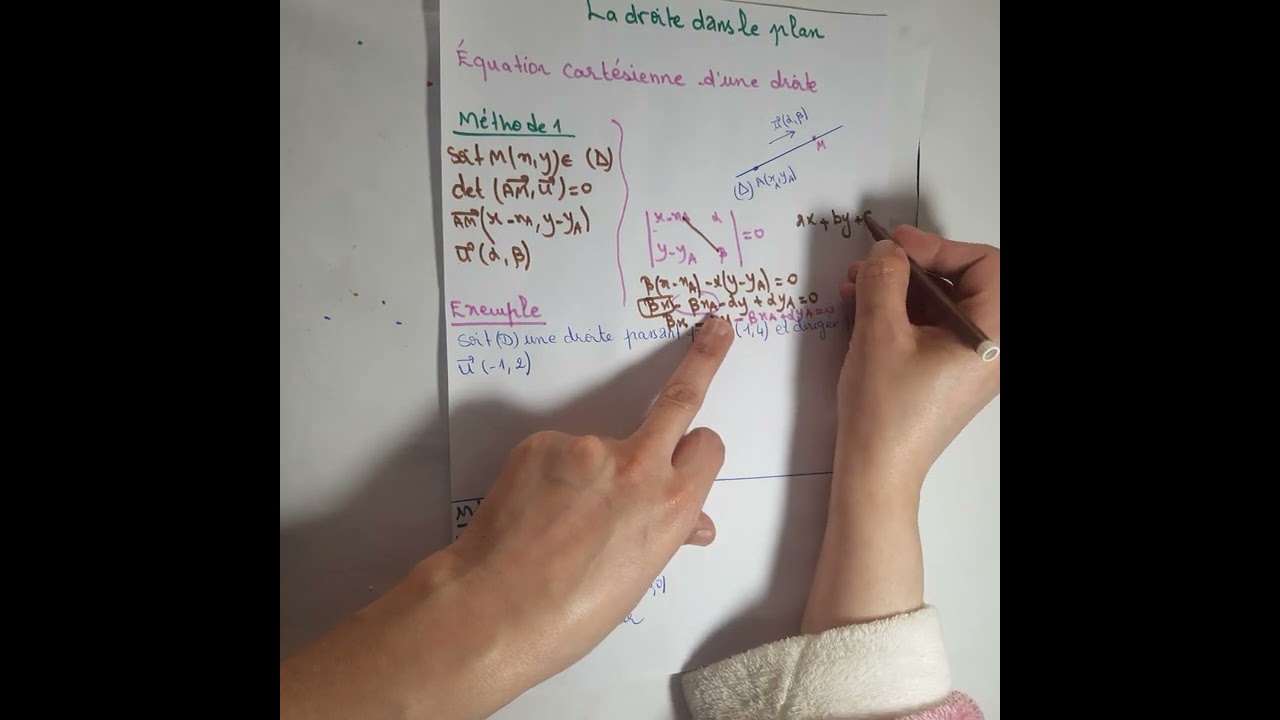 La droite dans le plan
Équation cartésienne d'une droite
Méthode 1
Soit M(x,y)∈ (Δ)
det (AM⃗, u⃗)=0
AM⃗(x-xA, y-yA)
u⃗(α, β)
u⃗(α,β)
M
(Δ) A(xA,yA)
|x-xA α|
|y-yA β| =0
ax + by +c
β(x-xA)-α(y-yA)=0
βx - βxA-αy+αyA=0
βx - - βxA+αyA=0
Exemple
Soit (D) une droite passant (1,4) et diriger
u⃗(-1,2)